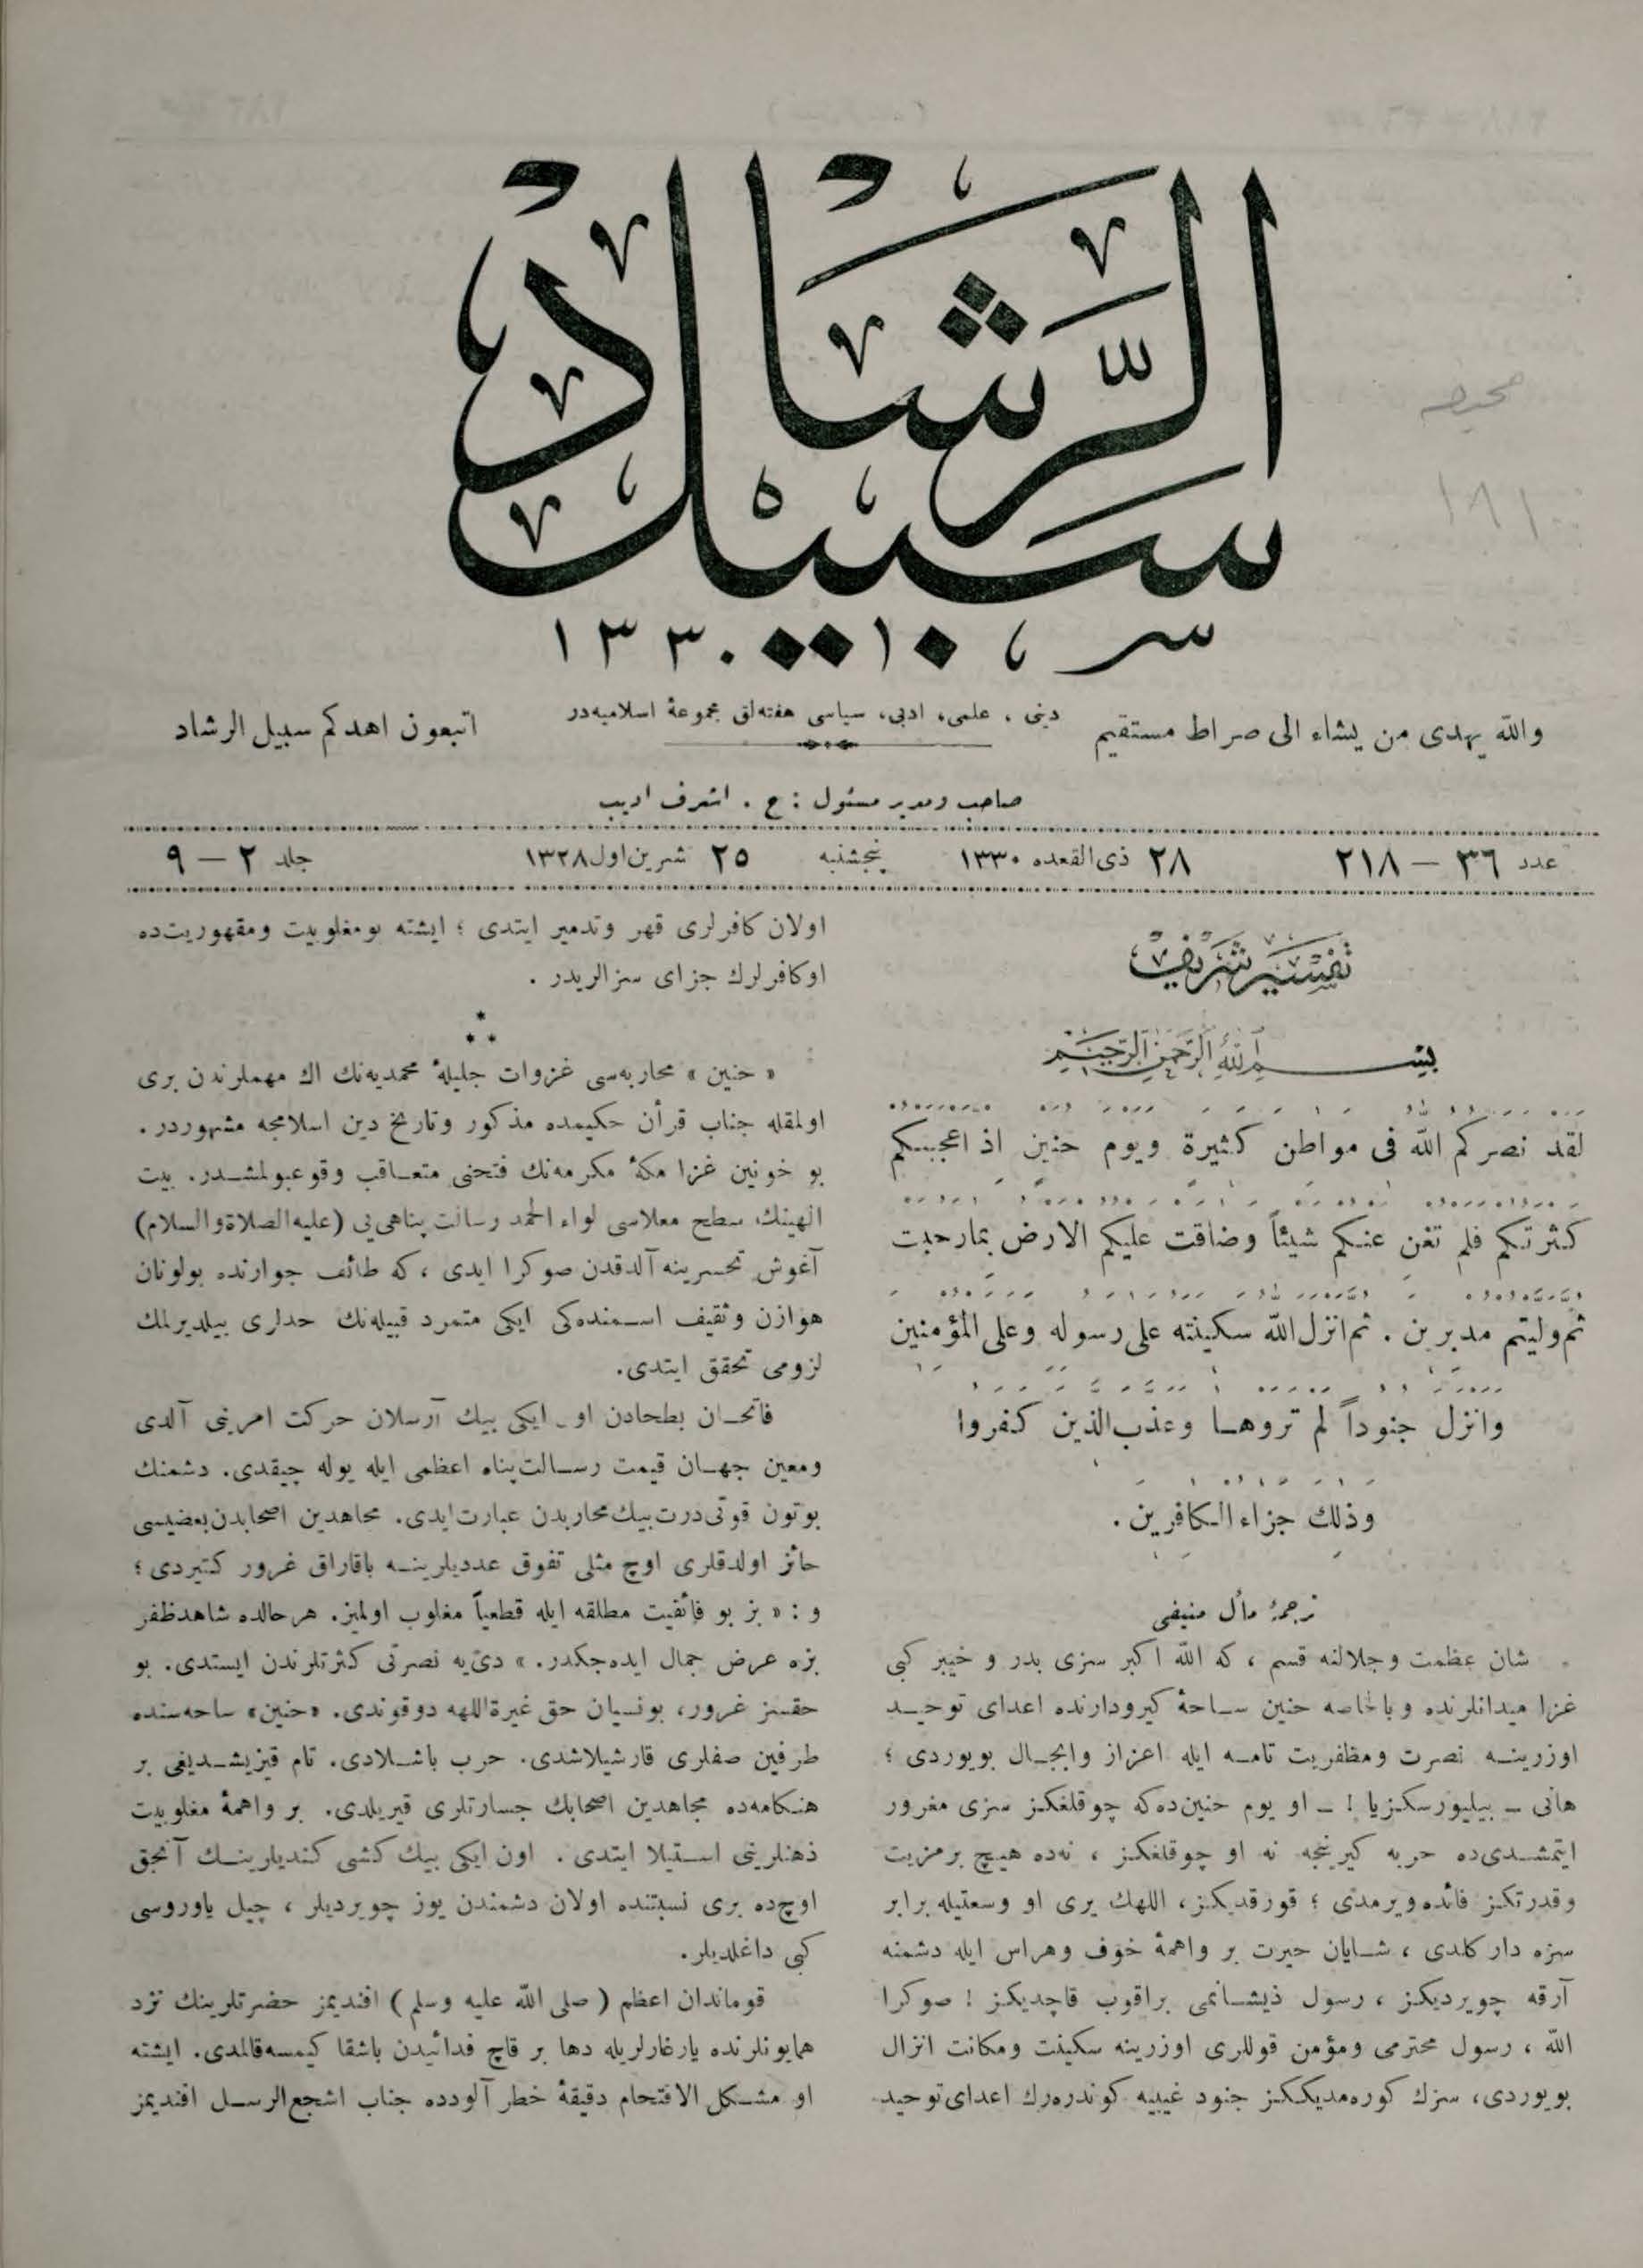 سبيل الرشاد
١٣٣٠
والله يهدى من يشاء الى صراط مستقيم
دينى ، علمى، ادبى، سياسى هفته‌لق مجموعۀ اسلاميه‌در
اتبعون اهدكم سبيل الرشاد
صاحب ومدير مسئول : ح . اشرف اديب
عدد ٣٦ – ٢١٨
٢٨ ذى القعده ١٣٣٠
پنجشنبه
٢٥ تشرين اول ١٣٢٨
جلد ٢ – ٩
تفسير شريف
بسم الله الرحمن الرحيم
لقد نصركم الله فى مواطن كثيرة ويوم حنين اذ اعجبتكم
كثرتكم فلم تغن عنكم شيئاً وضاقت عليكم الارض بمارحبت
ثم وليتم مدبرين . ثم انزل الله سكينته على رسوله وعلى المؤمنين
وانزل جنوداً لم تروها وعذب الذين كفروا
وذلك جزاء الكافرين .
ترجمۀ مأل منيفى
شان عظمت وجلالنه قسم ، كه الله اكبر سزى بدر و خيبر كبى
غزا ميدانلرنده وبالخاصه حنين ساحۀ كيرودارنده اعداى توحيد
اوزرينه نصرت ومظفريت تامه ايله اعزاز وابجال بويوردى ؛
هانى ـ بيليورسكزيا ! ـ او يوم حنين‌ده‌كه چوقلغكز سزى مغرور
ايتمشدى‌ده حربه كيرنجه نه او چوقلغكز ، نه‌ده هيچ برمزيت
وقدرتكز فائده ويرمدى ؛ قورقديكز، اللهك يرى او وسعتيله برابر
سزه دار كلدى ، شايان حيرت بر واهمۀ خوف وهراس ايله دشمنه
آرقه چويرديكز ، رسول ذيشانمى براقوب قاچديكز ! صوكرا
الله ، رسول محترمى ومؤمن قوللرى اوزرينه سكينت ومكانت انزال
بويوردى، سزك كوره‌مديككز جنود غيبيه كوندره‌رك اعداى توحيد
اولان كافرلرى قهر وتدمير ايتدى ؛ ايشته بومغلوبيت ومقهوريت‌ده
اوكافرلرك جزاى سزالريدر .
« حنين » محاربه‌سى غزوات جليلۀ محمديه‌نك اك مهملرندن برى
اولمقله جناب قرأن حكيمده مذكور وتاريخ دين اسلامجه مشهوردر .
بو خونين غزا مكۀ مكرمه‌نك فتحنى متعاقب وقوعبولمشدر. بيت
الهينك سطح معلاسى لواء الحمد رسالت پناهى‌يى (عليه الصلاة والسلام)
آغوش تحسرينه آلدقدن صوكرا ايدى ، كه طائف جوارنده بولونان
هوازن وثقيف اسمنده‌كى ايكى متمرد قبيله‌نك حدلرى بيلديرلمك
لزومى تحقق ايتدى.
فاتحان بطحادن اون ايكى بيك آرسلان حركت امرينى آلدى
ومعين جهان قيمت رسالت‌پناه اعظمى ايله يوله چيقدى. دشمنك
بوتون قوتى درت بيك محاربدن عبارت ايدى. مجاهدين اصحابدن بعضيسى
حائز اولدقلرى اوچ مثلى تفوق عدديلرينه باقاراق غرور كتيردى ؛
و : « بز بو فائقيت مطلقه ايله قطعياً مغلوب اولميز. هر حالده شاهد ظفر
بزه عرض جمال ايده‌جكدر. » دى‌يه نصرتى كثرتلرندن ايستدى. بو
حقسز غرور، بونسيان حق غيرة اللهه دوقوندى. «حنين» ساحه‌سنده
طرفين صفلرى قارشيلاشدى. حرب باشلادى. تام قيزيشديغى بر
هنكامه‌ده مجاهدين اصحابك جسارتلرى قيريلدى. بر واهمۀ مغلوبيت
ذهنلرينى استيلا ايتدى . اون ايكى بيك كشى كنديلرينك آنجق
اوچ‌ده برى نسبتنده اولان دشمندن يوز چويرديلر ، چيل ياوروسى
كبى داغلديلر.
قوماندان اعظم ( صلى الله عليه وسلم ) افنديمز حضرتلرينك نزد
همايونلرنده يارغارلريله دها بر قاچ فدائيدن باشقا كيمسه قالمدى. ايشته
او مشكل الاقتحام دقيقۀ خطر آلودده جناب اشجع الرسل افنديمز